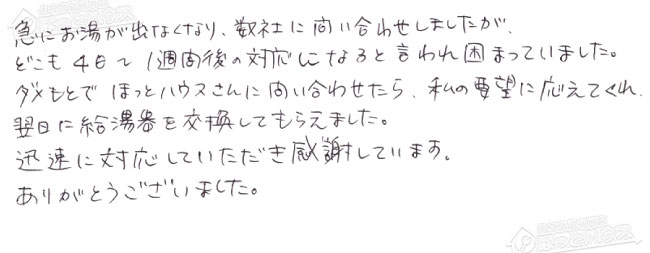 急にお湯が出なくなり、数社に問い合わせしましたが、
どこも4日～1週間後の対応になると言われ困まっていました。
ダメもとでほっとハウスさんに問い合わせたら、私の要望に応えてくれ、
翌日に給湯器を交換してもらえました。
迅速に対応していただき感謝しています。
ありがとうございました。